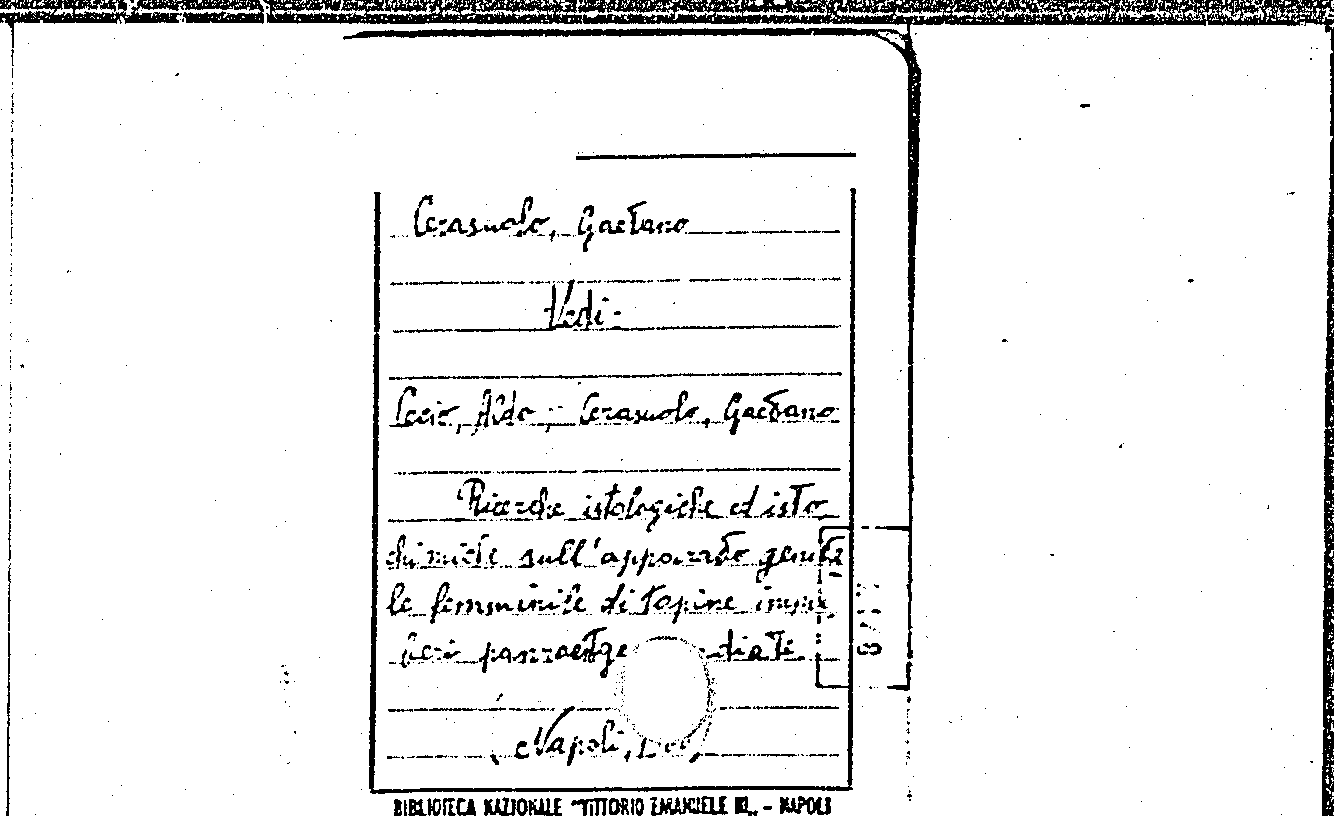 Cerasuolo, Gaetano
Vedi:
Cecio, Aldo; Cerasuolo, Gaetano
Ricerche istologiche ed isto
chimiche sull'apparato genita
le femminile di topine impu
beri panroentge diati
(Napoli,
BIBLIOTECA NAZIONALE "VITTORIO EMANUELE III" - NAPOLI